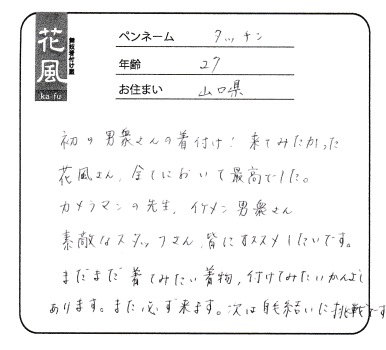 花風
ka-fu
舞妓着付け園
ペンネーム タッチン
年齢 27
お住まい 山口県
初の男衆さんの着付け！来てみたかった
花風さん、全てにおいて最高でした。
カメラマンの先生、イケメン男衆さん
素敵なスタッフさん、皆にオススメしたいです。
まだまだ着てみたい着物、付けてみたいかんざし
あります。また必ず来ます。次は自毛結いに挑戦です